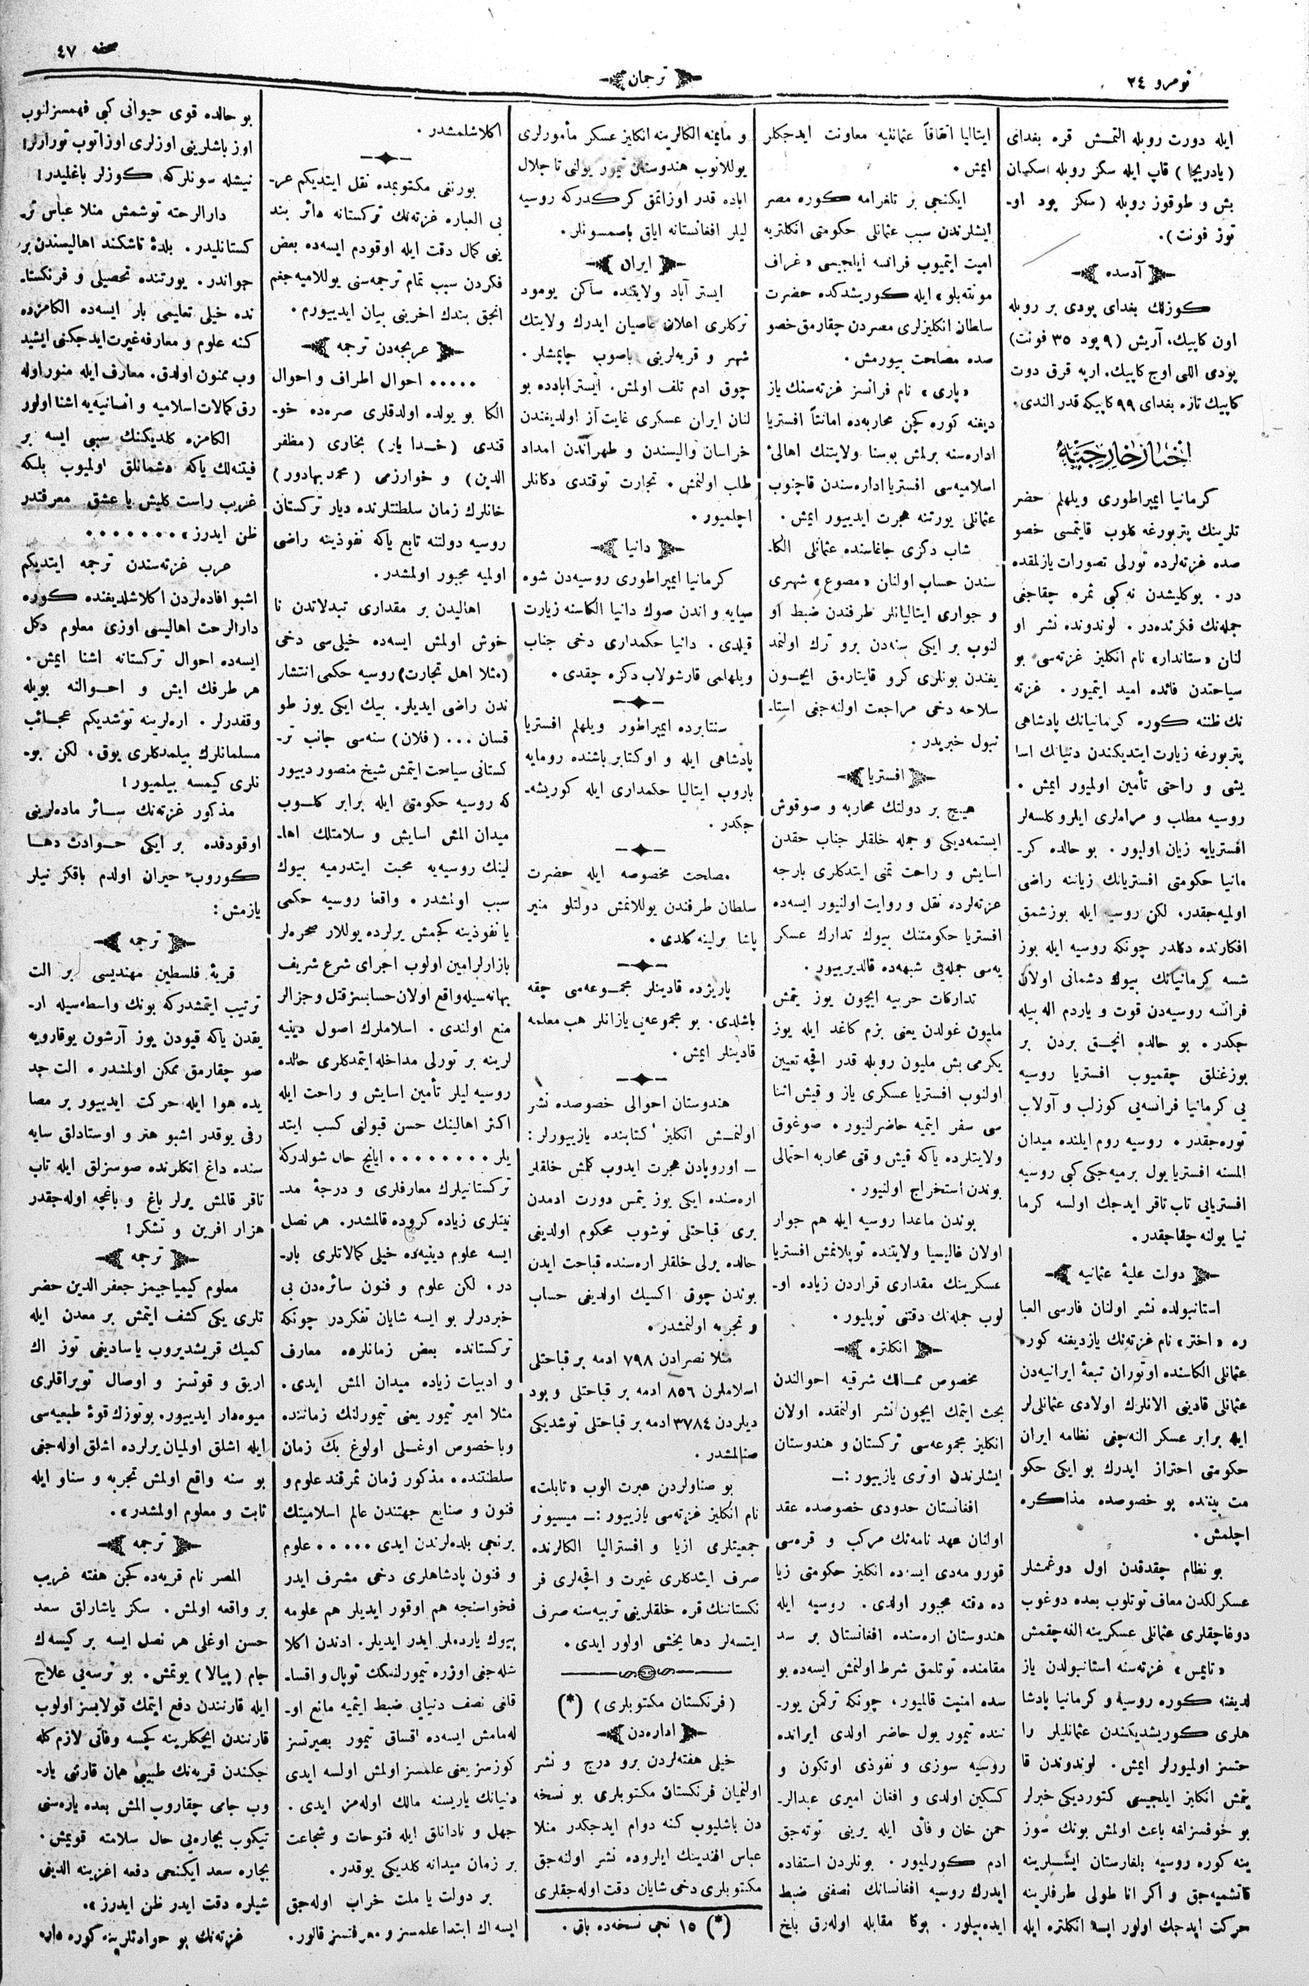 نومرو ٢٤
ترجمان
صحفه ٤٧
ايله دورت روبله التمش قره بغدای
(يادريجا) قاپ ايله سكز روبله اسكيان
بش و طوقوز روبله (سكز پود او-
توز فونت).
آدسه ده
كوزلك بغدای پودی بر روبله
اون كاپيك، آريش (٩ پود ٣٥ فونت)
پودی اللی اوچ كاپيك. اربه قرق دوت
كاپيك تازه بغدای ٩٩ كاپيكه قدر الندی.
اخبار خارجيه
كرمانيا ايمپراطوری ويلهلم حضر
تلرينك پتربورغه كلوب قايتمسی خصو
صده غزته لرده تورلی تصورات يازلمقده
در. بوكليشدن نه كبی ثمره چقاجغی
جمله نك فكرنده در. لوندونده نشر او
لنان «ستاندار» نام انكليز غزته سی بو
سياحتدن فائده اميد ايتميور. غزته
نك ظننه كوره كرمانيانك پادشاهی
پتربورغه زيارت ايتديكندن دنيانك اسا
يشی و راحتی تأمين اولميور ايمش.
روسيه مطلب و مرامری ايلرو كلسه لر
افستريايه زيان اوليور. بو حالده كر-
مانيا حكومتی افستريانك زياننه راضی
اوليه جقدر. لكن روسيه ايله بوزشمق
افكارنده دكلدر چونكه روسيه ايله بوز
شسه كرمانيانك بيوك دشمانی اولان
فرانسه روسيه دن قوت و ياردم اله بيله
جكدر. بو حالده انچق بردن بر
بوزغنلق چقميوب افستريا روسيه
يی كرمانيا فرانسه يی كوزلب و آولاب
توره جقدر. روسيه روم ايلنده ميدان
المسنه افستريا يول برميه جكی كبی روسيه
افستريايی تاب تاقر ايده جك اولسه كرما
نيا يولنه چقاجقدر.
دولت عليهٔ عثمانيه
استانبولده نشر اولنان فارسی العبا
ره «اختر» نام غزته نك يازديغنه كوره
عثمانلی الكاسنده اوتوران تبعهٔ ايرانيه دن
عثمانلی قادينی الانلرك اولادی عثمانلی لر
ايله برابر عسكر النه جغی نظامه ايران
حكومتی احتراز ايدرك بو ايكی حكو
مت بيننده بو خصوصده مذاكره
اچلمش.
بو نظام چقدقدن اول دوغمشلر
عسكرلكدن معاف توتلوب بعده دوغوب
دوغاجقلری عثمانلی عسكرينه الغه چقمش
«تايمس» غزته سنه استانبولدن ياز
لديغنه كوره روسيه و كرمانيا پادشا
هلری كوريشديكندن عثمانليلر را
حتسز اولميورلر ايمش. لوندوندن قا
يتمش انكليز ايلچيسی كتورديكی خبرلر
بو خوفسزلغه باعث اولمش بونك سوز
ينه كوره روسيه بلغارستان ايشلرينه
قاتشميه جق و اكر انا طولی طرفلرينه
حركت ايده جك اولور ايسه انكلتره ايله
ايتاليا اتفاقاً عثمانليه معاونت ايده جكلر
ايمش.
ايكنجی بر تلغرامه كوره مصر
ايشلرندن سبب عثمانلی حكومتی انكلتريه
اميت ايتميوب فرانسه ايلچيسی «غراف
مونته بلو» ايله كوريشدكده حضرت
سلطان انكليزلری مصردن چقارمق خصو
صده مصلحت بيورمش.
«پاری» نام فرانسز غزته سنك ياز
ديغنه كوره كچن محاربه ده امانتاً افستريا
اداره سنه برلمش بوسنا ولايتنك اهالئ
اسلاميه سی افستريا اداره سندن قاچنوب
عثمانلی يورتنه هجرت ايدييور ايمش.
شاب دكزی جاغاسنده عثمانلی الكا-
سندن حساب اولنان «مصوع» شهری
و جواری ايتاليانلر طرفندن ضبط او
لنوب بر ايكی سنه دن برو ترك اولنمد
يغندن بونلری كرو قايتارمق ايچون
سلاحه دخی مراجعت اولنه جغی استا-
نبول خبريدر.
افستريا
هيچ بر دولتك محاربه و صوقوش
ايستمه ديكی و جمله خلقلر جناب حقدن
اسايش و راحت تمنی ايتدكلری بارجه
غزته لرده نقل و روايت اولنيور ايسه ده
افستريا حكومتنك بيوك تدارك عسكر
يه سی جمله يی شبهه ده قالديرييور.
تداركات حربيه ايچون يوز يتمش
مليون غولدن يعنی بزم كاغد ايله يوز
يكرمی بش مليون روبله قدر اقچه تعيين
اولنوب افستريا عسكری ياز و قيش اثنا
سی سفر ايتميه حاضرلنيور. صوغوق
ولايتلرده ياكه قيش و قتی محاربه احتمالی
بوندن استخراج اولنيور.
بوندن ماعدا روسيه ايله هم جوار
اولان غاليسيا ولايتنده توپلانمش افستريا
عسكرينك مقداری قراردن زياده او-
لوب جمله نك دقتنی توپليور.
انكلتره
مخصوص ممالك شرقيه احوالندن
بحث ايتمك ايچون نشر اولنمقده اولان
انكليز مجموعه سی تركستان و هندوستان
ايشلرندن اوتری يازييور:ـ
افغانستان حدودی خصوصده عقد
اولنان عهد نامه نك مركب و قره سی
قورومه دی ايسه ده انكليز حكومتی زيا
ده دقته مجبور اولدی. روسيه ايله
هندوستان اره سنده افغانستان بر سد
مقامنده توتلمق شرط اولنمش ايسه ده بو
سده امنيت قالميور، چونكه تركمن يور-
تنده تيمور يول حاضر اولدی ايرانده
روسيه سوزی و نفوذی اوتكون و
كسكين اولدی و افغان اميری عبدالر-
حمن خان و فاتی ايله يرينی توته جق
ادم كورلميور. بونلردن استفاده
ايدرك روسيه افغانستانك نصفنی ضبط
ايده بيلور. بوكا مقابله اوله رق بلخ
و مايمنه الكالرينه انكليز عسكر مأمورلری
يوللانوب هندوستان تيمور يولنی تا جلال
اباده قدر اوزاتمق كركدركه روسيه
ليلر افغانستانه اياق باصمسونلر.
ايران
ايستر آباد ولايتنده ساكن يومود
تركلری اعلان عاصيان ايدرك ولايتك
شهر و قريه لرينی باصوب چاپمشلر.
چوق ادم تلف اولمش. ايستراباده بو
لنان ايران عسكری غايت آز اولديغندن
خراسان واليسندن و طهراندن امداد
طلب اولنمش. تجارت توقتدی دكانلر
اچلميور.
دانيا
كرمانيا ايمپراطوری روسيه دن شوه
سيايه و اندن صوك دانيا الكاسنه زيارت
قيلدی. دانيا حكمداری دخی جناب
ويلهلمی قارشولاب دكزه چقدی.
سنتابرده ايمپراطور ويلهلم افستريا
پادشاهی ايله و اوكتابر باشنده رومايه
باروب ايتاليا حكمداری ايله كوريشه-
جكدر.
مصلحت مخصوصه ايله حضرت
سلطان طرفندن يوللانمش دولتلو منير
پاشا برلينه كلدی.
پاريژده قادينلر مجموعه سی چقه
باشلدی. بو مجموعه يی يازانلر هب معلمه
قادينلر ايمش.
هندوستان احوالی خصوصده نشر
اولنمش انكليز كتابنده يازييورلر:
ـ اوروپادن هجرت ايدوب كلمش خلقلر
اره سنده ايكی يوز يتمس دورت ادمدن
بری قباحتلی توشوب محكوم اولديغی
حالده يرلی خلقلر اره سنده قباحت ايدن
بوندن چوق اكسيك اولديغی حساب
و تجربه اولنمشدر.
مثلا نصرادن ٧٩٨ ادمه بر قباحتلی
اسلاملرن ٨٥٦ ادمه بر قباحتلی و بود
ديلردن ٣٧٨٤ ادمه بر قباحتلی توشديكی
صنالمشدر.
بو صناولردن عبرت الوب «تابلت»
نام انكليز غزته سی يازييور:ـ ميسيونر
جمعيتلری ازيا و افستراليا الكالرنده
صرف ايتدكلری غيرت و اقچه لری فر
نكستاننك قره خلقلرينی تربيه سنه صرف
ايتسه لر دها يخشی اولور ايدی.
(فرنكستان مكتوبلری) (*)
اداره دن
خيلی هفته لردن برو درج و نشر
اولنميان فرنكستان مكتوبلری بو نسخه
دن باشليوب كنه دوام ايده جكدر مثلا
عباس افندينك ايلروده نشر اولنه جق
مكتوبلری دخی شايان دقت اوله جقلری
(*) ١٥ نجی نسخه ده باق.
اكلاشلمشدر.
بورنغی مكتوبمده نقل ايتديكم عر-
بی العباره غزته نك تركستانه دائر بند
ينی كمال دقت ايله اوقودم ايسه ده بعض
فكردن سبب تمام ترجمه سنی يوللاميه جغم
انجق بندك اخرينی بيان ايدييورم.
عربجه دن ترجمه
..... احوال اطراف و احوال
الكا بو يولده اولدقلری صره ده خو-
قندی (خدا يار) بخاری (مظفر
الدين) و خوارزمی (محمد بهادور)
خانلرك زمان سلطنتلرنده ديار تركستان
روسيه دولتنه تابع ياكه نفوذينه راضی
اولميه مجبور اولمشدر.
اهاليدن بر مقداری تبدلاتدن نا
خوش اولمش ايسه ده خيلی سی دخی
(مثلا اهل تجارت) روسيه حكمی انتشار
ندن راضی ايديلر. بيك ايكی يوز طو
قسان ... (فلان) سنه سی جانب تر-
كستانی سياحت ايتمش شيخ منصور دييور
كه روسيه حكومتی ايله برابر كلوب
ميدان المش اسايش و سلامتلك اها-
لينك روسيه يه محبت ايتدرميه بيوك
سبب اولمشدر. واقعا روسيه حكمی
يا نفوذينه كچمش يرلرده يوللار صحره لر
بازارلر امين اولوب اجرای شرع شريف
بهانه سيله واقع اولان حسابسز قتل و جزالر
منع اولندی. اسلاملرك اصول دينيه
لرينه بر تورلی مداخله ايتمدكلری حالده
روسيه ليلر تأمين اسايش و راحت ايله
اكثر اهالينك حسن قبولنی كسب ايتد
يلر........ ايانچ حال شولدركه
تركستانيلرك معارفلری و درجهٔ مد-
نيتلری زياده كروده قالمشدر. هر نصل
ايسه علوم دينيه ده خيلی كمالاتلری بار-
در. لكن علوم و فنون سائره دن بی
خبردرلر بو ايسه شايان تفكردر چونكه
تركستانده بعض زمانلرده معارف
و ادبيات زياده ميدان المش ايدی.
مثلا امير تيمور يعنی تيمورلنك زماننده
وبا خصوص اوغلی اولوغ بك زمان
سلطنتنده. مذكور زمان ثمرقند علوم و
فنون و صنايع جهتندن عالم اسلاميتك
برنجی بلده لرندن ايدی ..... علوم
و فنون پادشاهلری دخی مشرف ايدر
فخواسنجه هم اوقور ايديلر هم علومه
بيوك ياردملر ايدر ايديلر. اندن اكلا
شله جغی اوزره تيمورلنكك توپال و اقسا-
قلغی نصف دنيايی ضبط ايتميه مانع او-
له مامش ايسه ده اقساق تيمور بصيرتسز
كوزسز يعنی علمسز اولمش اولسه ايدی
دنيانك ياريسنه مالك اوله مز ايدی.
جهل و نادانلق ايله فتوحات و شجاعت
بر زمان ميدانه كلديكی يوقدر.
بر دولت يا ملت خراب اوله جق
ايسه اك ابتدا علمسز و معرفتسز قالور.
بو حالده قوی حيوانی كبی فهمسزلنوب
اوز باشلرينی اوزلری اوزاتوب تورارلر!
نيشله سونلركه كوزلر باغليدر!
دارالرحته توشمش منلا عباس تر-
كستانليدر. بلدهٔ تاشكند اهاليسندن بر
جواندر. يورتنده تحصيلی و فرنكستا-
نده خيلی تعليمی بار ايسه ده الكامزده
كنه علوم و معارفه غيرت ايده جكنی ايشيد
وب ممنون اولدق. معارف ايله منور اوله
رق كمالات اسلاميه و انسانيه يه اشنا اولور
الكامزه كلديكنك سببی ايسه بر
فيتنه لك ياكه دشمانلق اولميوب بلكه
غريب راست كليش يا عشق معرفتدر
ظن ايدرز».......
عرب غزته سندن ترجمه ايتديكم
اشبو افاده لردن اكلاشلديغنده كوره
دارالرحت اهاليسی اوزی معلوم دكل
ايسه ده احوال تركستانه اشنا ايمش.
هر طرفك ايش و احوالنه بويله
وقفدرلر. اره لرينه توشديكم عجائب
مسلمانلرك بيلمدكلری يوق، لكن بو-
نلری كيمسه بيلميور!
مذكور غزته نك سائر ماده لرينی
اوقودقده بر ايكی حوادث دها
كوروب حيران اولدم باقكز نيلر
يازمش:
ترجمه
قريهٔ فلسطين مهنديسی بر الت
ترتيب ايتمشدركه بونك واسطه سيله ار-
يقدن ياكه قيودن يوز آرشون يوقارويه
صو چقارمق ممكن اولمشدر. الت جد
يده هوا ايله حركت ايدييور بر مصا
رفی يوقدر اشبو هنر و اوستادلق سايه
سنده داغ اتكلرنده صوسزلق ايله تاب
تاقر قالمش يرلر باغ و باغچه اوله جقدر
هزار افرين و تشكر!
ترجمه
معلوم كيمياجيمز جعفر الدين حضر
تلری يكی كشف ايتمش بر معدن ايله
كميك قريشديروب ياساديغی توز اك
اريق و قوتسز و اوصال توپراقلری
ميوه دار ايدييور. بوتوزك قوهٔ طبيعيه سی
ايله اشلق اولميان يرلرده اشلق اوله جغی
بو سنه واقع اولمش تجربه و سناو ايله
ثابت و معلوم اولمشدر».
ترجمه
المصر نام قريه ده كچن هفته غريب
بر واقعه اولمش. سكز ياشارلق سعد
حسن اوغلی هر نصل ايسه بر كيسه ك
جام (پيالا) يوتمش. بو ترسه يی علاج
ايله قارنندن دفع ايتمك قولايسز اولوب
قارنندن ايچكلرينه كچسه وفاتی لازم كله
جكندن قريه نك طبيبی همان قارنی يار-
وب جامی چقاروب المش بعده ياره سنی
تيكوب بچاره يی حال سلامته قويمش.
بچاره سعد ايكنجی دفعه اغزينه الديغی
شيلره دقت ايدر ظن ايدرز».
غزته نك بو حوادثلرينه كوره دار-